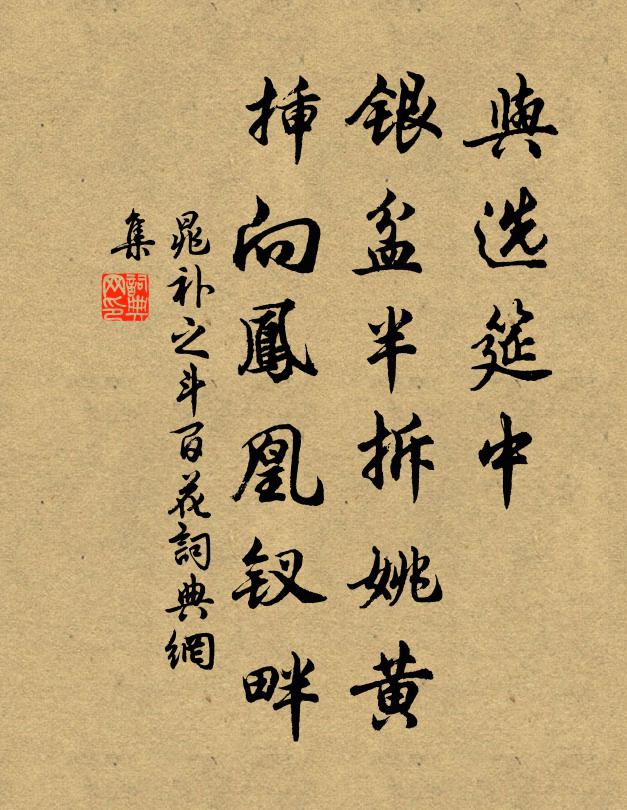 與选筵中
銀盆半拆姚黄
挿向鳳凰钗畔
晁补之斗百花詞典網
集
詞典
网印